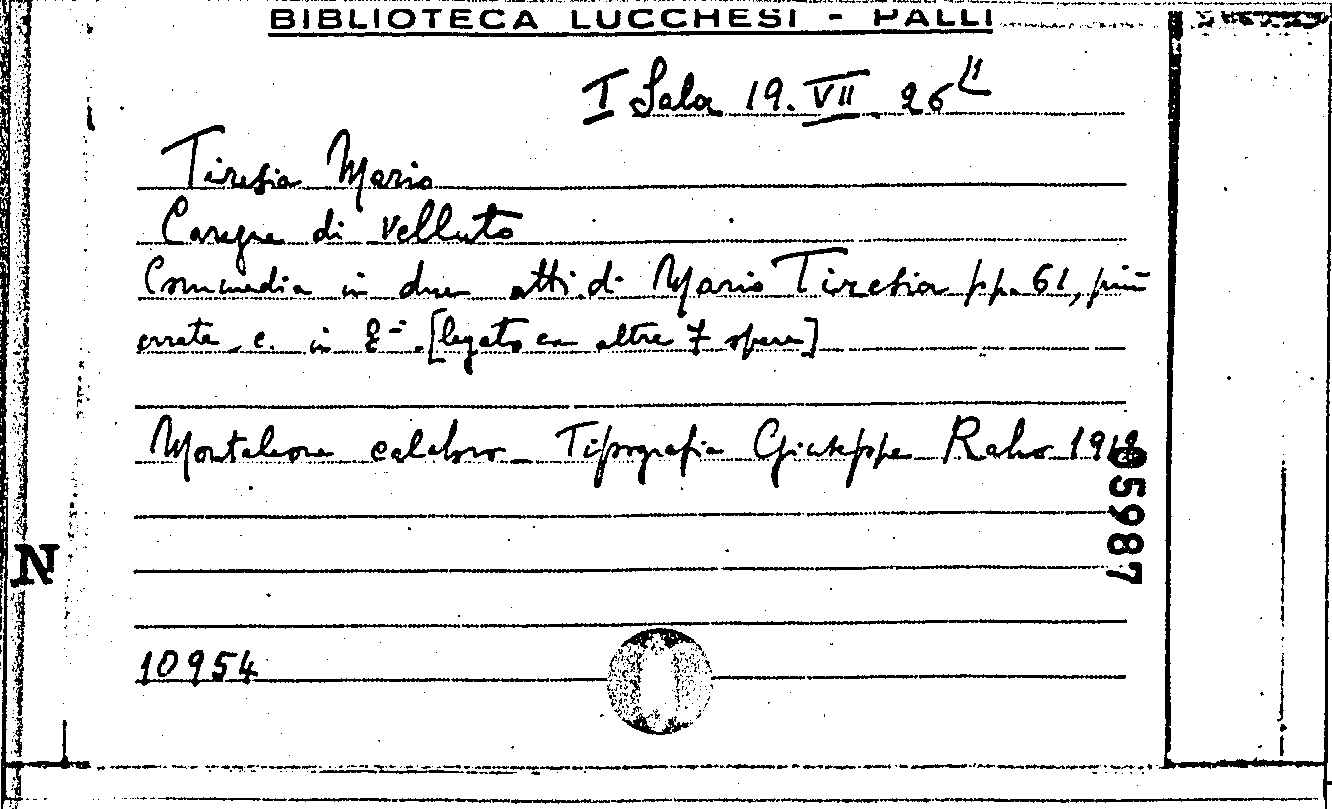 BIBLIOTECA LUCCHESI - PALLI
I Sala 19. VII 26 11
Tiresia Mario
Carezze di velluto
Commedia in due atti di Mario Tiresia pp. 61, più
errata c. in 8º. [legato con altre 7 opere]
Monteleone calabro - Tipografia Giuseppe Raho
05987
N
10954